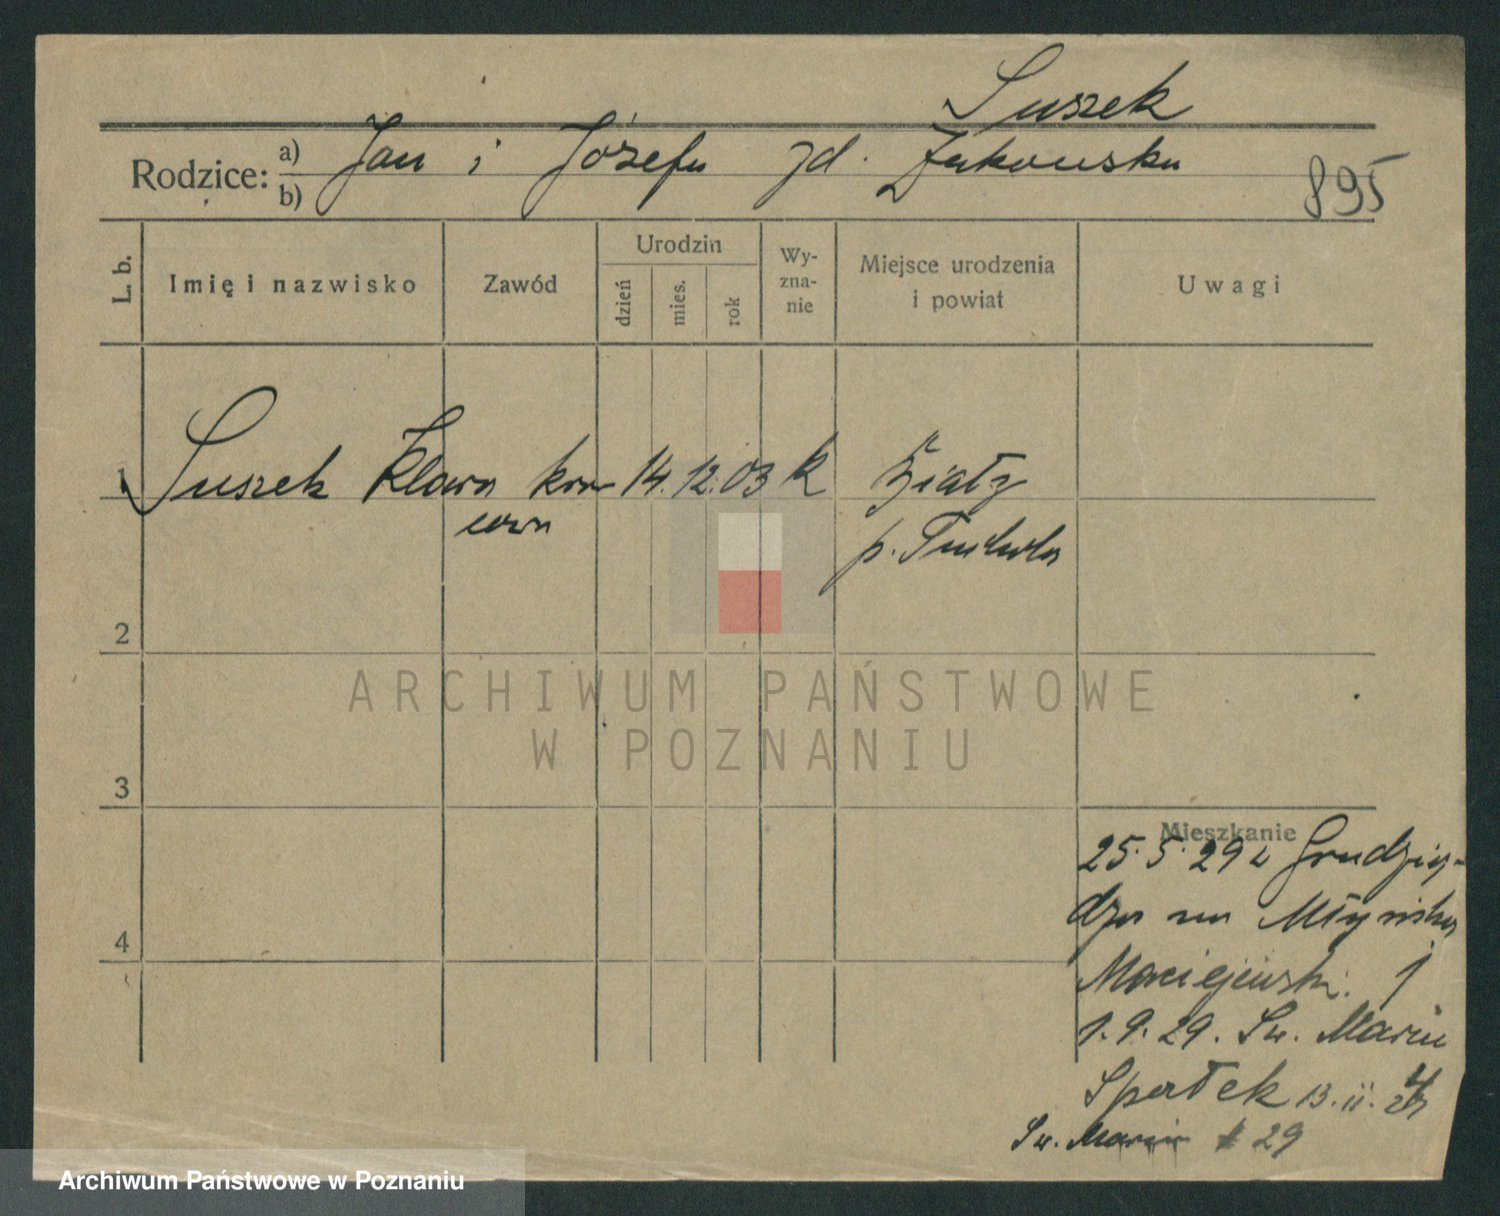 Suszek
Rodzice: a) Jan i Józefa zd. Żukowska
b)
895
L. b. Imię i nazwisko Zawód Urodzin dzień mies. rok Wyznanie Miejsce urodzenia i powiat Uwagi
1 Suszek Klara kraw 14. 12. 03 k
cowa p. Tuchola
2
3
4
Mieszkanie
25. 5. 29 z Grudzią-
dza na Młyńska
Maciejewski. 1
1. 9. 29. Św. Marcin
Sperłek 13. 11.
Św. Marcin 29
ARCHIWUM PAŃSTWOWE
W POZNANIU
Archiwum Państwowe w Poznaniu